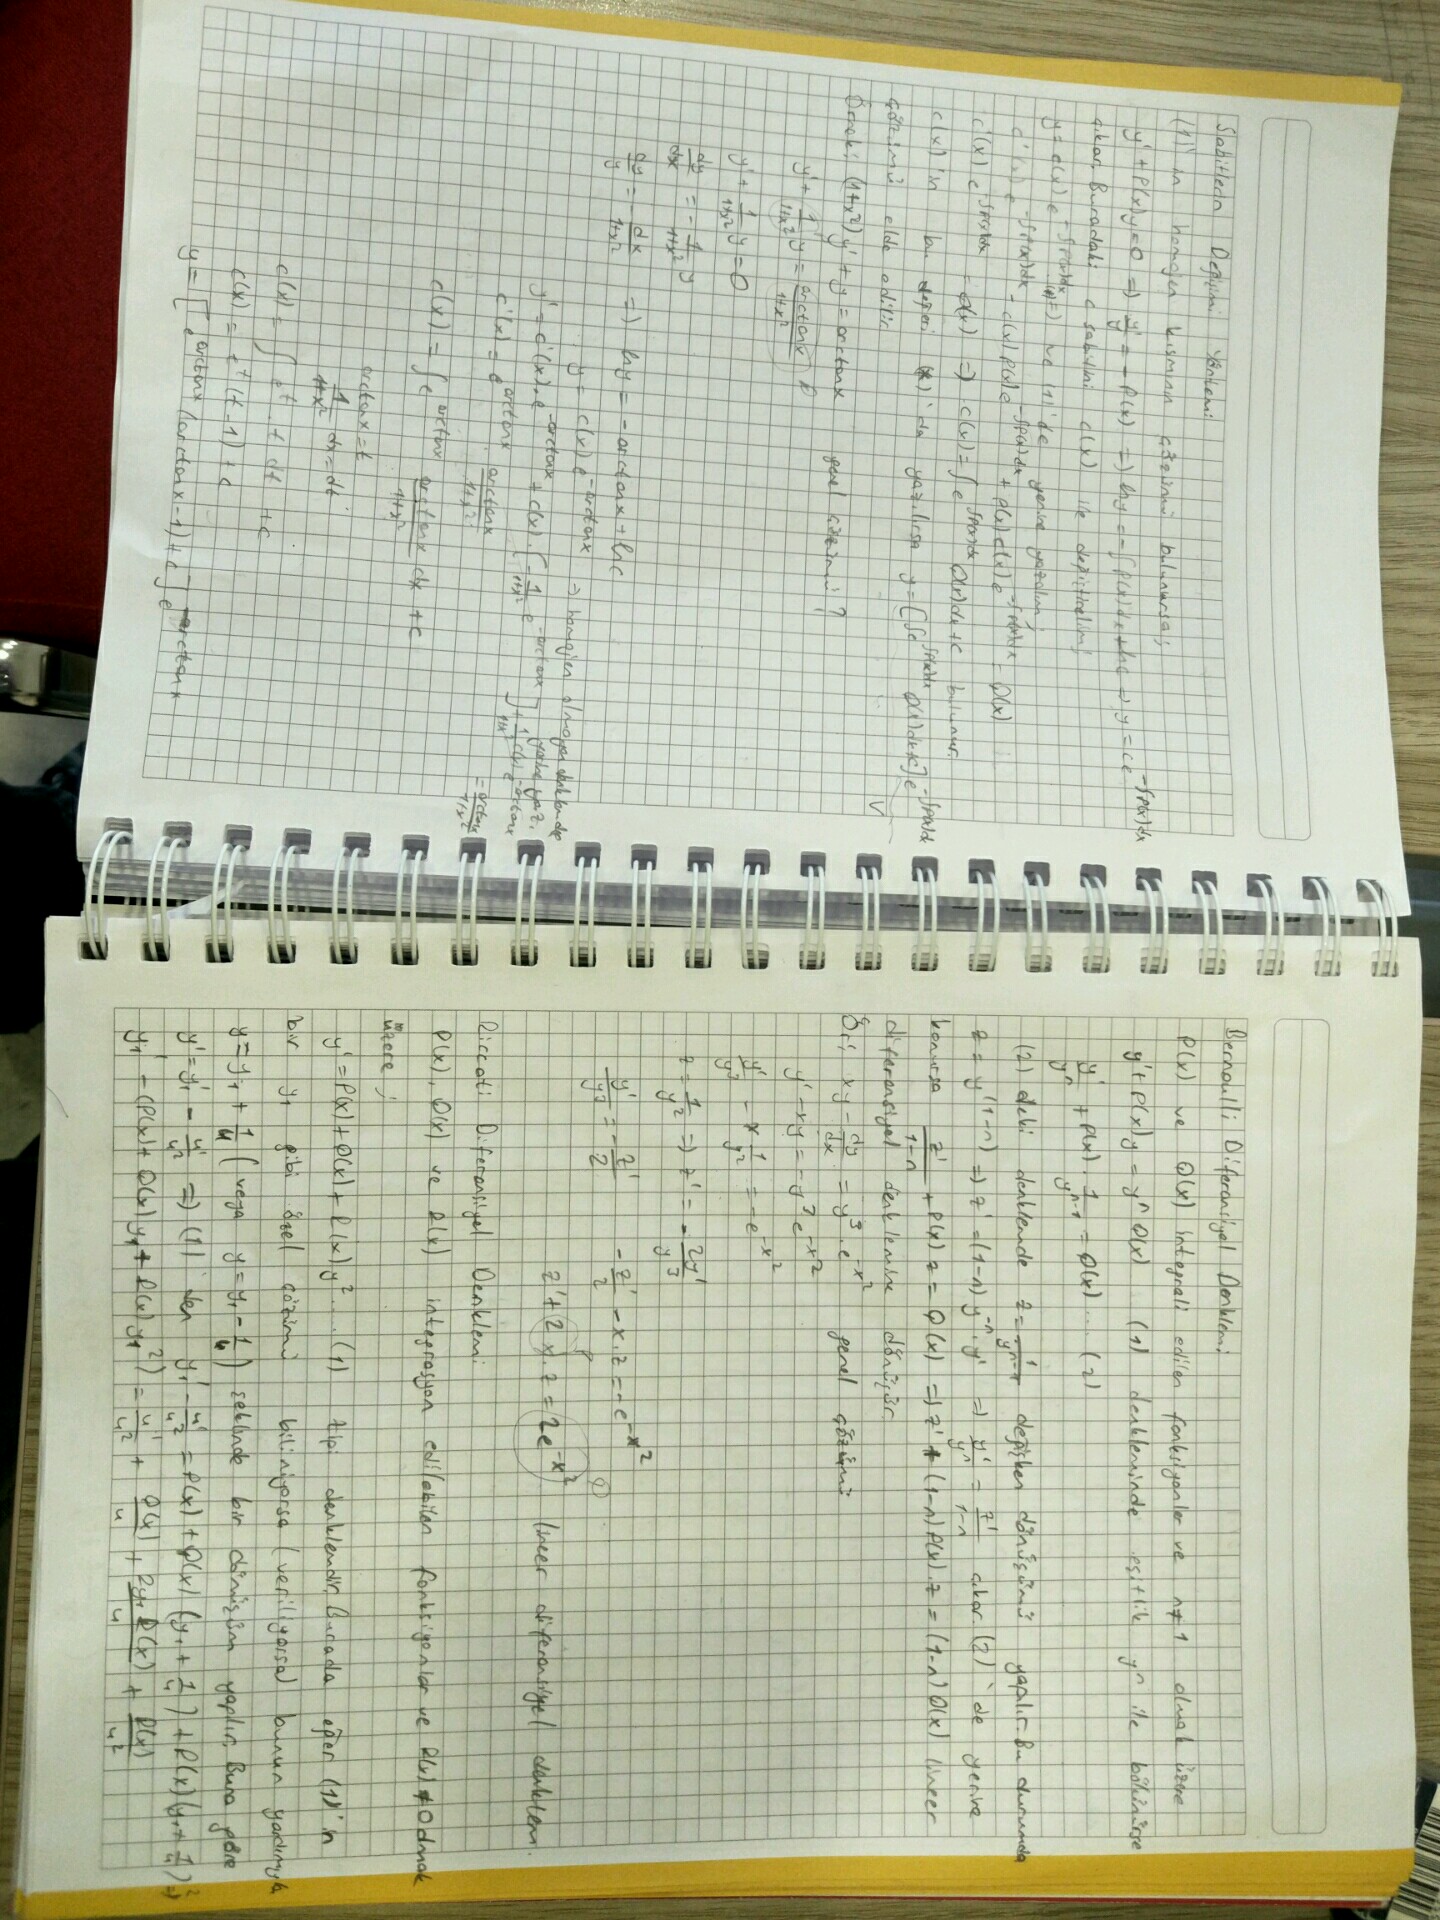 Sabitlerin Değişimi Yöntemi
(1)'in homojen kısmının çözümü bulunursa;
y' + P(x)y = 0 => y'/y = -P(x) => lny = -∫P(x)dx + lnc => y = ce^(-∫P(x)dx)
çıkar. Buradaki c sabitini c(x) ile değiştirelim;
y = c(x) e^(-∫P(x)dx) (*) => ve (1)'de yerine yazalım;
c'(x) e^(-∫P(x)dx) - c(x) P(x) e^(-∫P(x)dx) + p(x) c(x) e^(-∫P(x)dx) = Q(x)
c'(x) e^(-∫P(x)dx) = Q(x) => c(x) = ∫e^(∫P(x)dx) Q(x)dx + c bulunur.
c(x)'in bu değeri (*)'da yazılırsa y = [∫e^(∫P(x)dx) Q(x)dx + c] e^(-∫P(x)dx)
çözümü elde edilir.
Örnek: (1+x²) y' + y = arctanx genel çözümü?
y' + 1/(1+x²) y = arctanx/(1+x²)
y' + 1/(1+x²) y = 0
dy/dx = - 1/(1+x²) y
dy/y = - dx/(1+x²) => lny = -arctanx + lnc
y = c(x) e^(-arctanx) → homojen olmayan denklemde
yerine yaz.
y' = c'(x).e^(-arctanx) + c(x).[-1/(1+x²) e^(-arctanx)] + 1/(1+x²) c(x) e^(-arctanx)
= arctanx/(1+x²)
c'(x) = e^(arctanx) arctanx/(1+x²)
c(x) = ∫e^(arctanx) arctanx/(1+x²) dx + c
arctanx = t
1/(1+x²) dx = dt
c(x) = ∫ e^t . t dt + c
c(x) = e^t (t-1) + c
y = [e^(arctanx) (arctanx-1) + c] e^(-arctanx)
Bernoulli Diferansiyel Denklemi
P(x) ve Q(x) integrali edilen fonksiyonlar ve n≠1 olmak üzere
y' + P(x)y = y^n Q(x) (1) denkleminde eşitlik y^n ile bölünürse
y'/y^n + P(x) . 1/y^(n-1) = Q(x) .... (2)
(2) deki denklemde z = 1/y^(n-1) değişken dönüşümü yapılır. Bu durumda
z = y^(1-n) => z' = (1-n) y^(-n) . y' => y'/y^n = z'/(1-n) çıkar. (2)'de yerine
konursa z'/(1-n) + P(x) z = Q(x) => z' + (1-n) P(x) . z = (1-n) Q(x) lineer
diferansiyel denklemine dönüşür.
Ör: xy - dy/dx = y³ . e^(-x²) genel çözümü
y' - xy = -y³ e^(-x²)
y'/y³ - x 1/y² = -e^(-x²)
z = 1/y² => z' = - 2y'/y³
y'/y³ = - z'/2 - z'/2 - x.z = -e^(-x²)
z' + 2x.z = 2e^(-x²) lineer diferansiyel denklem.
Riccati Diferansiyel Denklemi
P(x), Q(x) ve R(x) integrasyon edilebilen fonksiyonlar ve R(x) ≠ 0 olmak
üzere;
y' = P(x) + Q(x) + R(x) y² .... (1) tipi denklemdir. Burada eğer (1)'in
bir y₁ gibi özel çözümü biliniyorsa (veriliyorsa) bunun yardımıyla
y = y₁ + 1/u (veya y = y₁ - 1/u) şeklinde bir dönüşüm yapılır. Buna göre
y' = y₁' - u'/u² => (1) den y₁' - u'/u² = P(x) + Q(x) (y₁ + 1/u) + R(x) (y₁ + 1/u)² =>
y₁' - (P(x) + Q(x) y₁ + R(x) y₁²) = u'/u² + Q(x)/u + 2y₁ R(x)/u + R(x)/u²